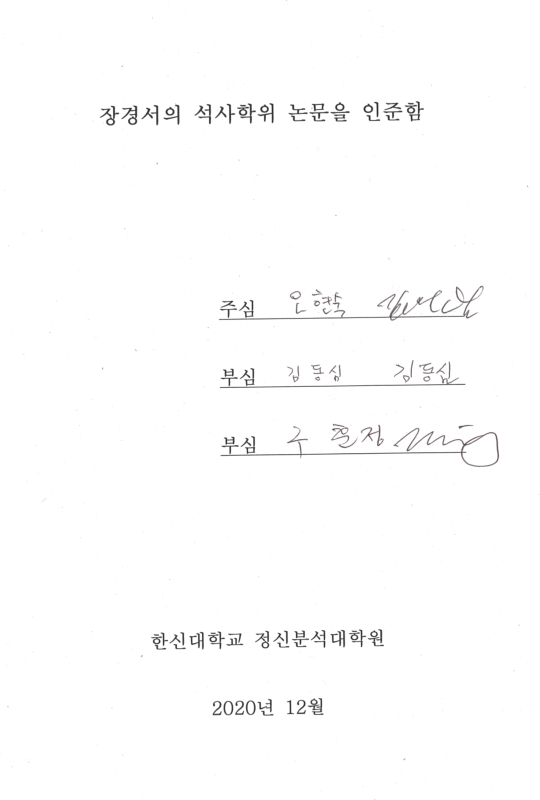 장경서의 석사학위 논문을 인준함
주심 오현숙
부심 김동심 김동심
부심 구훈정
한신대학교 정신분석대학원
2020년 12월